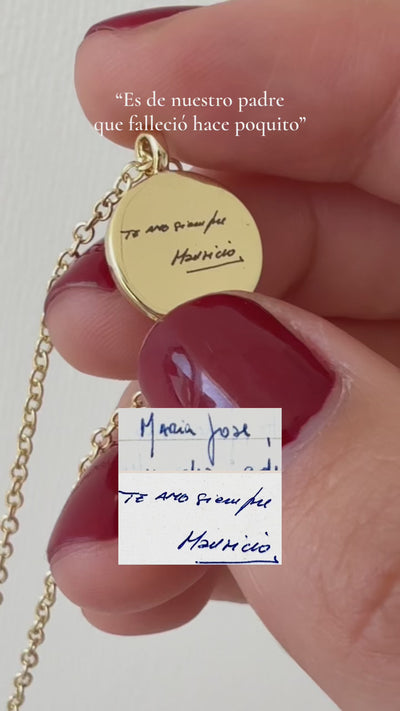 “Es de nuestro padre
que falleció hace poquito”
TE AMO siempre
Mauricio,
MARIA José,
TE AMO siempre
Mauricio,